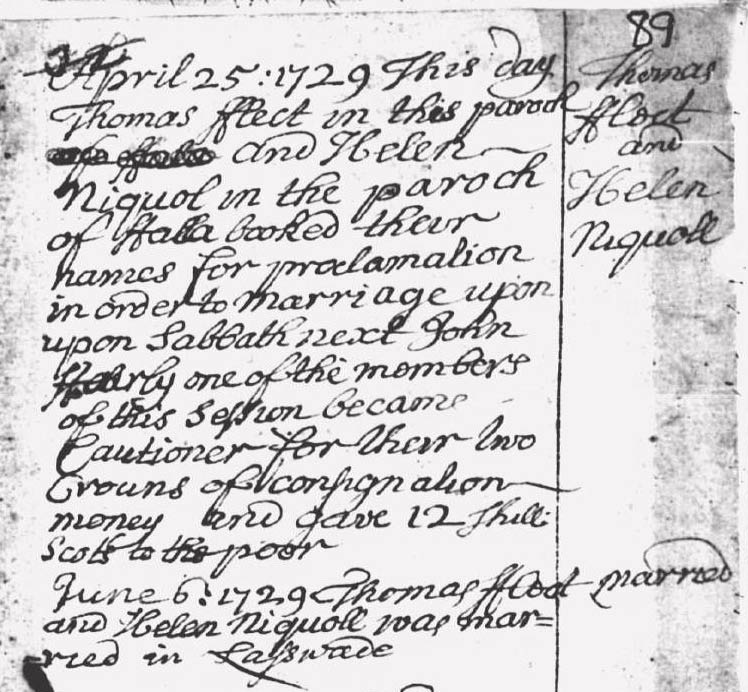 89
April 25: 1729 This day
Thomas fflect in this paroch
and Helen
Niquol in the paroch
of ffalla booked theur
names for proclamation
in order to marriage upon
upon Sabbath next John
one of the members
of this Session became
Cautioner for their two
Crouns of consignation
money and gave 12 shill:
Scots to the poor
June 6: 1729 Thomas fflect
and Helen Niquoll was mar=
ried in Lasswade
Thomas
fflect
and
Helen
Niquoll
married